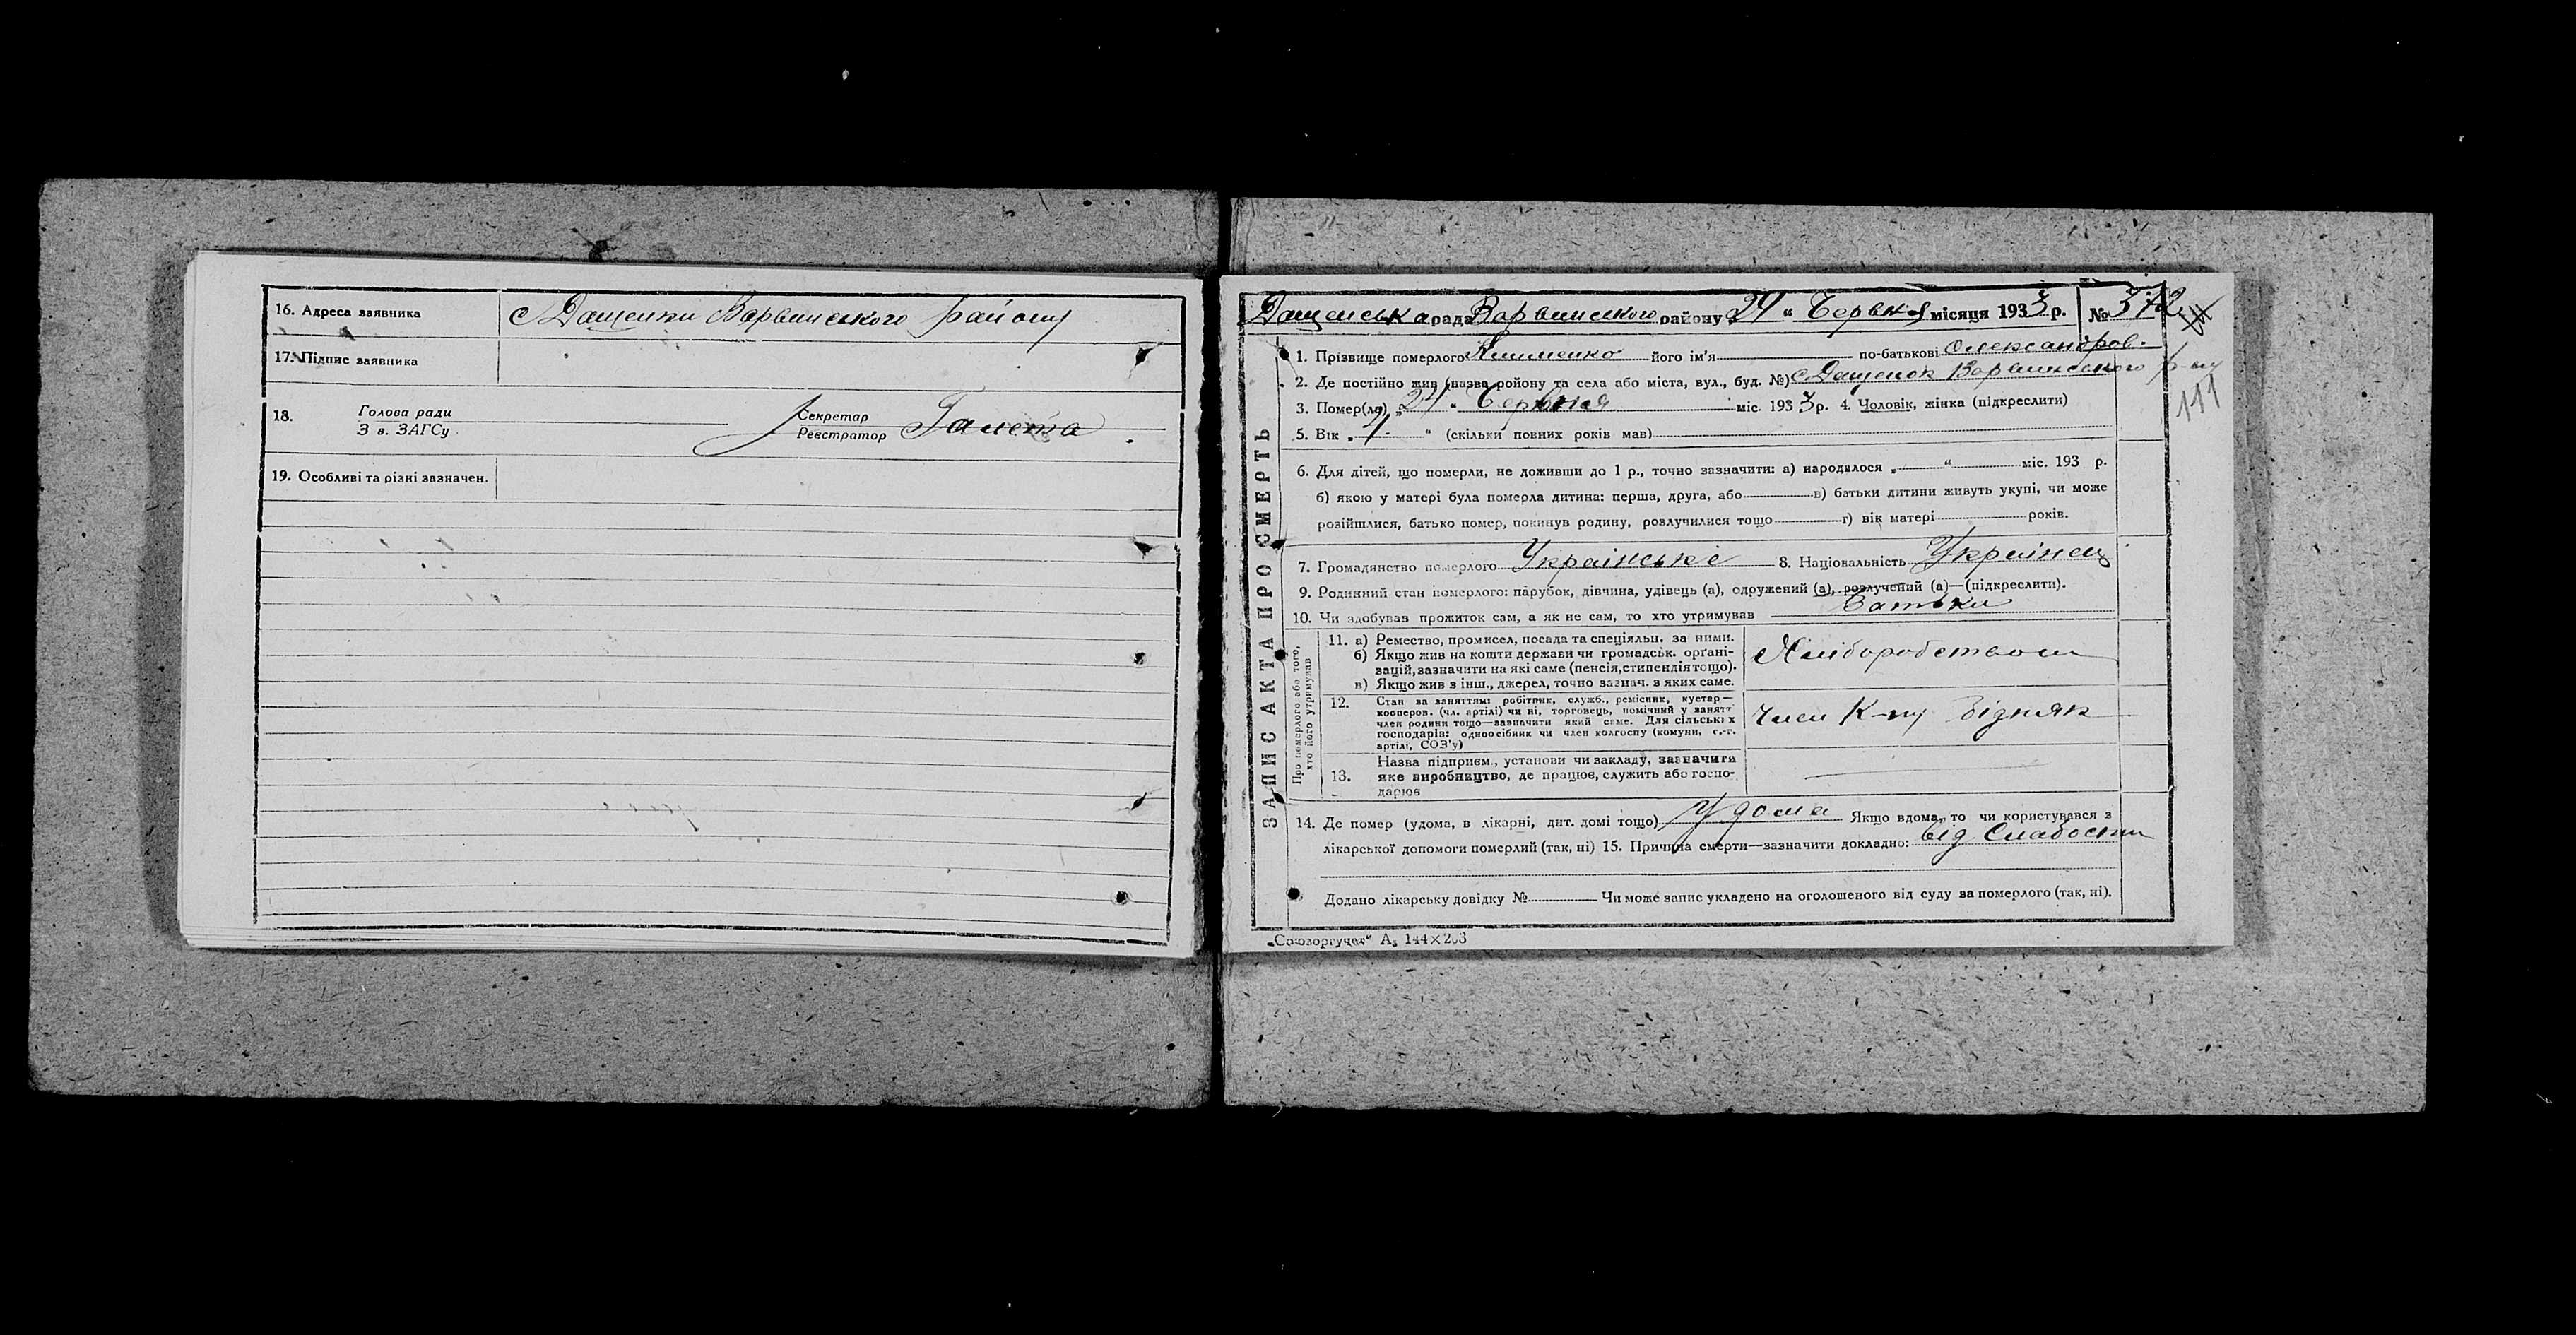 16. Адреса заявника С Дащенки Варвинського району
17. Підпис заявника
18. Голова ради Секретар
З в. ЗАГСу Реєстратор Галета
19. Особливі та різні зазначен.
Дащенська рада Варвинського району „24“ Червня місяця 1933 р. № 372
1. Прізвище померлого його ім'я по-батькові Олександров.
2. Де постійно жив (назва району та села або міста, вул., буд. №) с Дащенок Варвинського р-ну
111
3. Помер(ла) „24“ Червня міс. 1933 р. 4. Чоловік, жінка (підкреслити)
5. Вік „4“ (скільки повних років мав)
6. Для дітей, що померли, не доживши до 1 р., точно зазначити: а) народилося „ “ міс. 193 р.
б) якою у матері була померла дитина: перша, друга, або в) батьки дитини живуть укупі, чи може
розійшлися, батько помер, покинув родину, розлучилися тощо г) вік матері років.
7. Громадянство померлого Українське 8. Національність Українец
9. Родинний стан померлого: парубок, дівчина, удівець (а), одружений (а), розлучений (а)—(підкреслити).
10. Чи здобував прожиток сам, а як не сам, то хто утримував Батьки
ЗАПИС АКТА ПРО СМЕРТЬ
Про померлого або того, хто його утримував
11. а) Ремество, промисел, посада та спеціяльн. за ними.
б) Якщо жив на кошти держави чи громадськ. органі-
зацій, зазначити на які саме (пенсія, стипендія тощо).
в) Якщо жив з інш., джерел, точно зазнач. з яких саме.
Хліборобством
12. Стан за заняттям: робітник, служб., ремісник, кустар—
кооперов. (чл. артілі) чи ні, торговець, помічний у занятт
член родини тощо—зазначити який саме. Для сільських
господарів: одноосібник чи член колгоспу (комуни, с.-г.
артілі, СОЗ'у)
Член К-пу бідняк
13. Назва підприєм., установи чи закладу, зазначити
яке виробництво, де працює, служить або госпо-
дарює
14. Де помер (удома, в лікарні, дит. домі тощо) У дома Якщо вдома, то чи користувався з
лікарської допомоги померлий (так, ні) 15. Причина смерти—зазначити докладно: від Слабости
Додано лікарську довідку № Чи може запис укладено на оголошеного від суду за померлого (так, ні).
„Союзоргучет“ А₅ 144×203